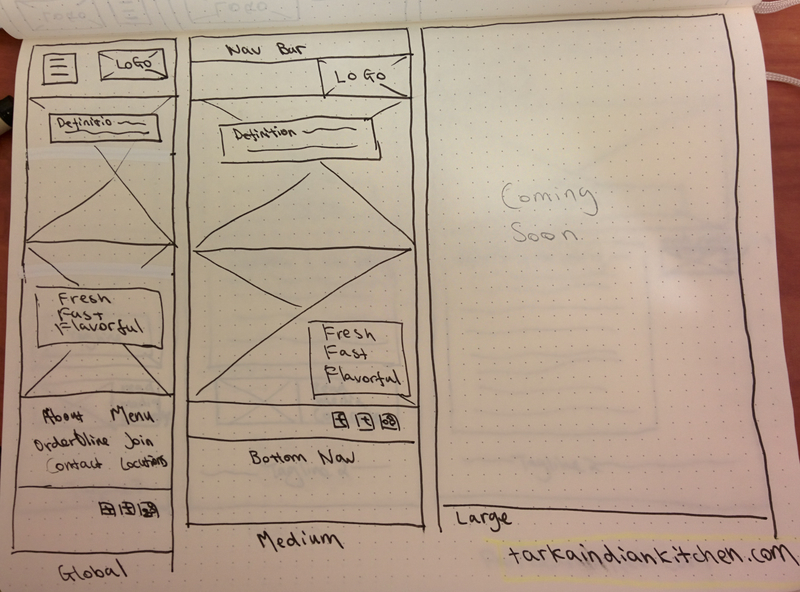 LOGO
Definitio
Fresh
Fast
Flavorful
About Menu
Order Oline Join
Contact Locations
Global
Nav Bar
LOGO
Definition
Fresh
Fast
Flavorful
f t
Bottom Nav
Medium
Coming
Soon
Large
tarkaindiankitchen.com